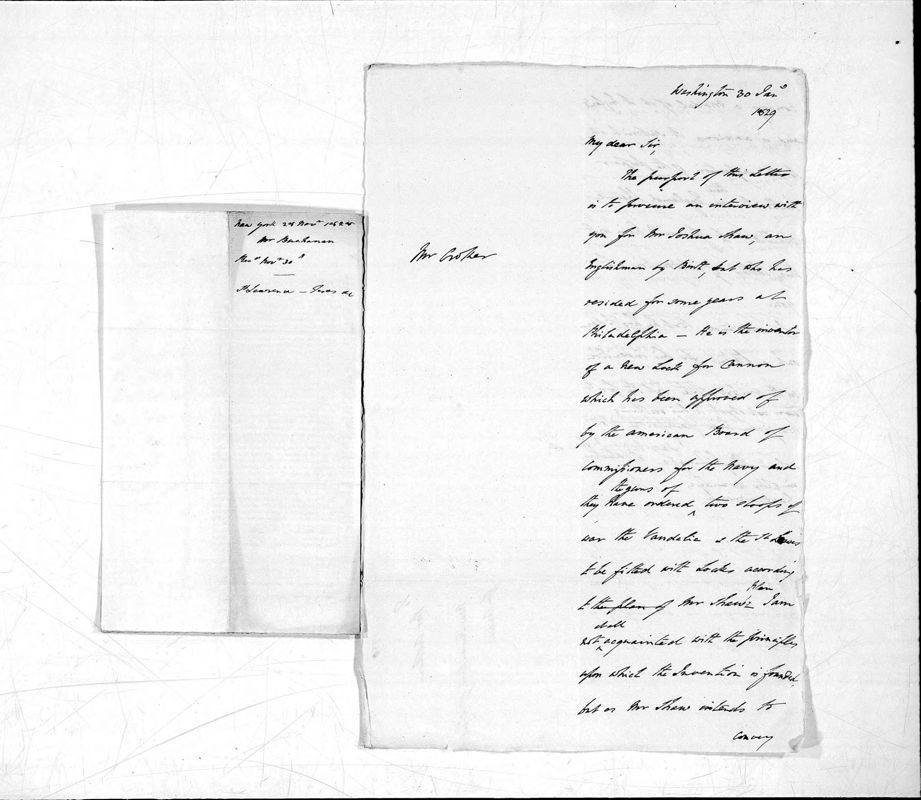 New York 28 Novr 1828
Mr Buchanan
Recd Novr 30th
St Lawrence – Fees &c
Mr Croker
Washington 30 Jany
1829
My dear Sir,
The purport of this Letter
is to procure an interview with
you for Mr Joshua Shaw, an
Englishman by Birth, but who has
resided for some years at
Philadelphia – He is the inventor
of a new Lock for Cannon
which has been approved of
by the American Board of
Commissioners for the Navy and
the guns of
they have ordered ^ two sloops of
war the Vandalia & the St Louis
to be fitted with Locks according
plan
to the plan of Mr Shaw's I am
well
not ^ acquainted with the principles
upon which the Invention is founded,
but as Mr Shaw intends to
convey